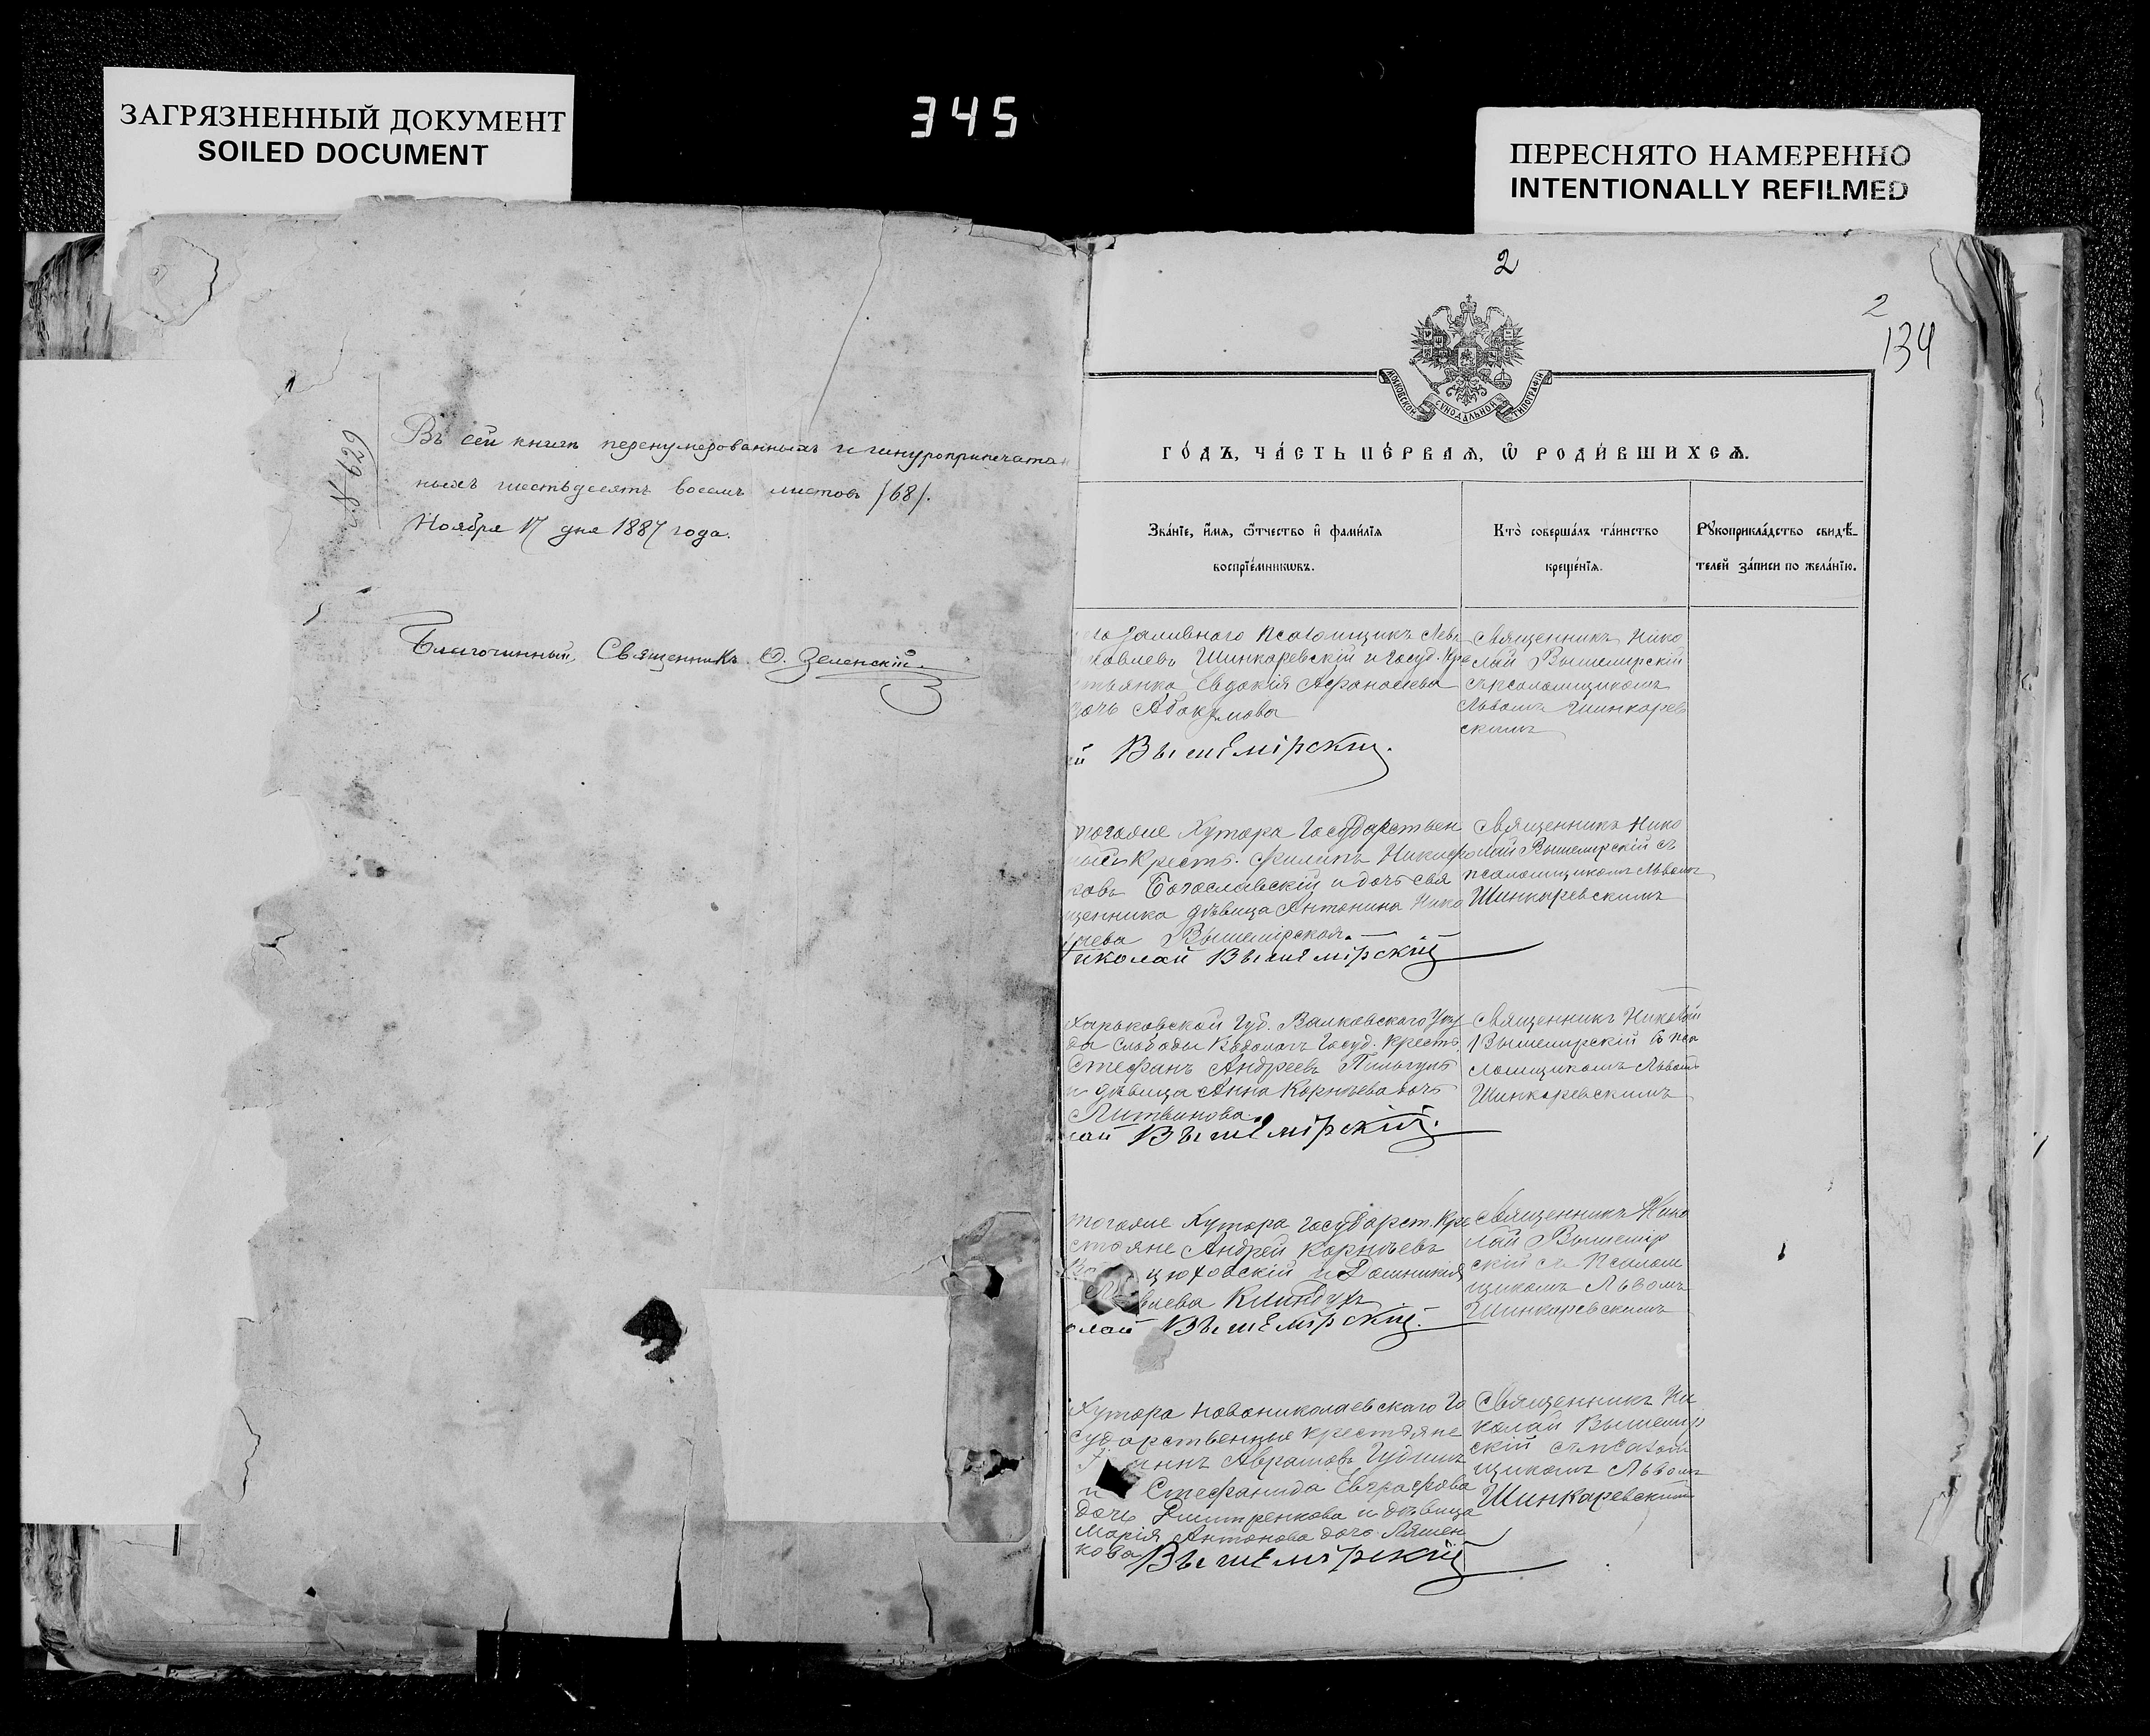 ЗАГРЯЗНЕННЫЙ ДОКУМЕНТ
SOILED DOCUMENT
345
ПЕРЕСНЯТО НАМЕРЕННО
INTENTIONALLY REFILMED
№ 629
Въ сей книгѣ перенумерованныхъ и шнуроприпечатан
ныхъ шестьдесятъ восемь листовъ /68/.
Ноября 17 дня 1887 года.
Благочинный, Священникъ Ѳ. Зеленскій.
2
2
134
МОСКОВСКОЙ СѴНОДАЛЬНОЙ ТИПОГРАФІИ
ГО́ДЪ, ЧА́СТЬ ПЕ́РВАѦ, Ѡ҆ РОДИ́ВШИХСѦ.
Зва́нїе, и҆́мѧ, ѻ҆́тчество и҆ фами́лїѧ
воспрїе́мникѡвъ.
Кто̀ соверша́лъ та́инство
креще́нїѧ.
Рꙋкоприкла́дство свидѣ́-
телей за́писи по жела́нїю.
Заливного Псаломщикъ Левъ
Яковлевъ Шинкаревскій и Госуд. Кре
стьянка Евдокія Афанасіева
дочь Абакумова
й Вышемірскій.
Священникъ Нико
лай Вышемирскій
съ псаломщикомъ
Львомъ Шинкарев
скимъ
тогоже Хутора Государствен
ный Крест. Филипъ Никифо
ровъ Богославскій и дочь свя
щенника дѣвица Антонина Нико
лаева Вышемірская.
Николай Вышемірскій
Священникъ Нико
лай Вышемирскій съ
псаломщикомъ Львомъ
Шинкаревскимъ
Харьковской Губ. Валковскаго Уѣз
да Слободы Водолагъ Госуд. Крест.
Стефанъ Андреевъ
и дѣвица Анна Корнѣева дочь
Литвинова.
лай Вышемірскій.
Священникъ Николай
Вышемирскій съ пса
ломщикомъ Львомъ
Шинкаревскимъ
тогоже Хутора Государст. Кре
стьяне Андрей Корнѣевъ
цюховскій и Домникія
Климдухъ
олай Вышемірскій.
Священникъ Нико
лай Вышемир
скій съ Псалом
щикомъ Львомъ
Шинкаревскимъ
Хутора Новониколаевскаго Го
сударственные крестьяне
Аврамовъ Гудимъ
и Стефанида Евграфова
дочь Дмитренкова и дѣвица
Марія Антонова дочь Ляшен
кова Вышемірскій
Священникъ Ни
колай Вышемир
скій съ псалом
щикомъ Львомъ
Шинкаревскимъ